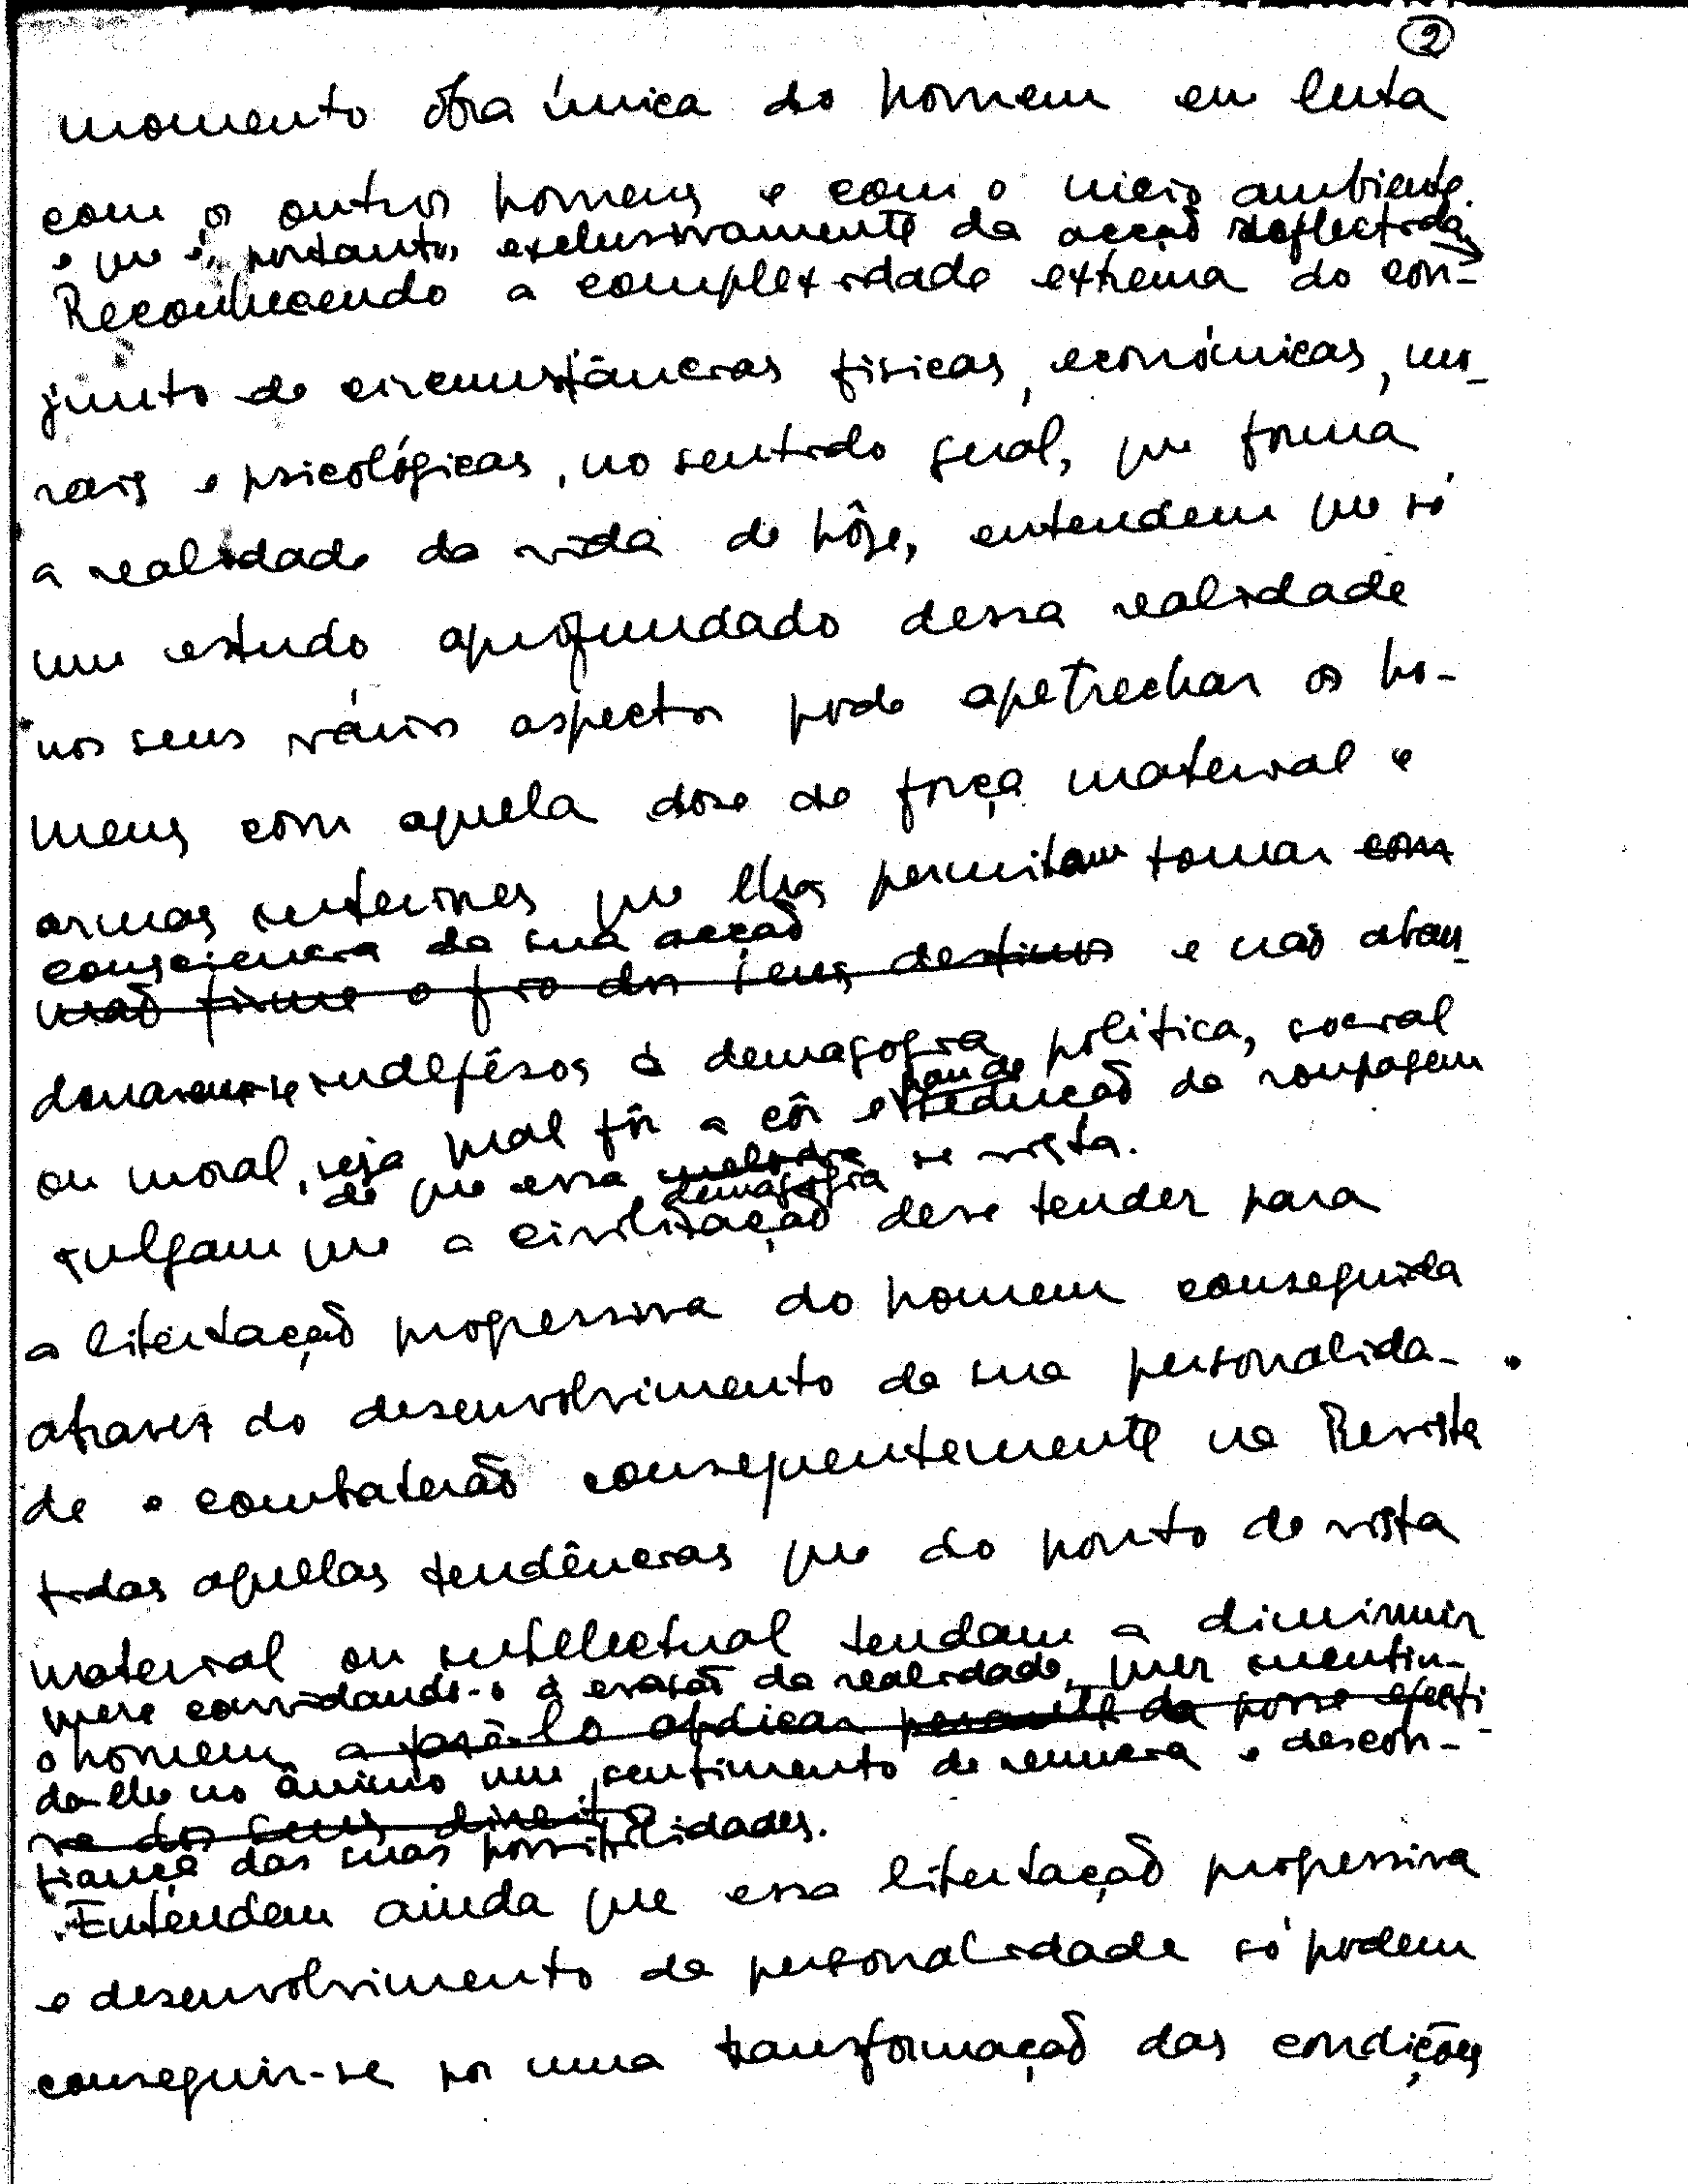 2
momento obra única do homem em luta
com os outros homens e com o meio ambiente.
e que é, portanto, exclusivamente da acção reflectida
Reconhecendo a complexidade extrema do con-
junto de circunstâncias físicas, económicas, mo-
rais e psicológicas, no sentido geral, que forma
a realidade da vida de hôje, entendem que só
um estudo aprofundado dessa realidade
nos seus vários aspectos pode apetrechar os ho-
mens com aquela dose de força material e
armas interiores que lhes permitam tomar com
consciencia da sua acção
mão firme o fio dos seus destinos e não aban-
donarem-se indefêsos à demagogia política, social
ou moral, seja qual fôr a côr e sedução da roupagem
de que essa demagogia se vista.
Julgam que a civilização deve tender para
a libertação progressiva do homem conseguida
atravez do desenvolvimento da sua personalida-
de e combaterão consequentemente na Revista
todas aquellas tendências que do ponto de vista
material ou intellectual tendam a diminuir
quere convidando-o à evasão da realidade, quer incutin-
o homem, a fazê-lo abdicar perante da posse efecti-
do-lhe no ânimo um sentimento de renuncia e descon-
va dos seus direitos
fiança das suas possibilidades.
Entendem ainda que essa libertação progressiva
e desenvolvimento da personalidade só podem
conseguir-se por uma transformação das condições